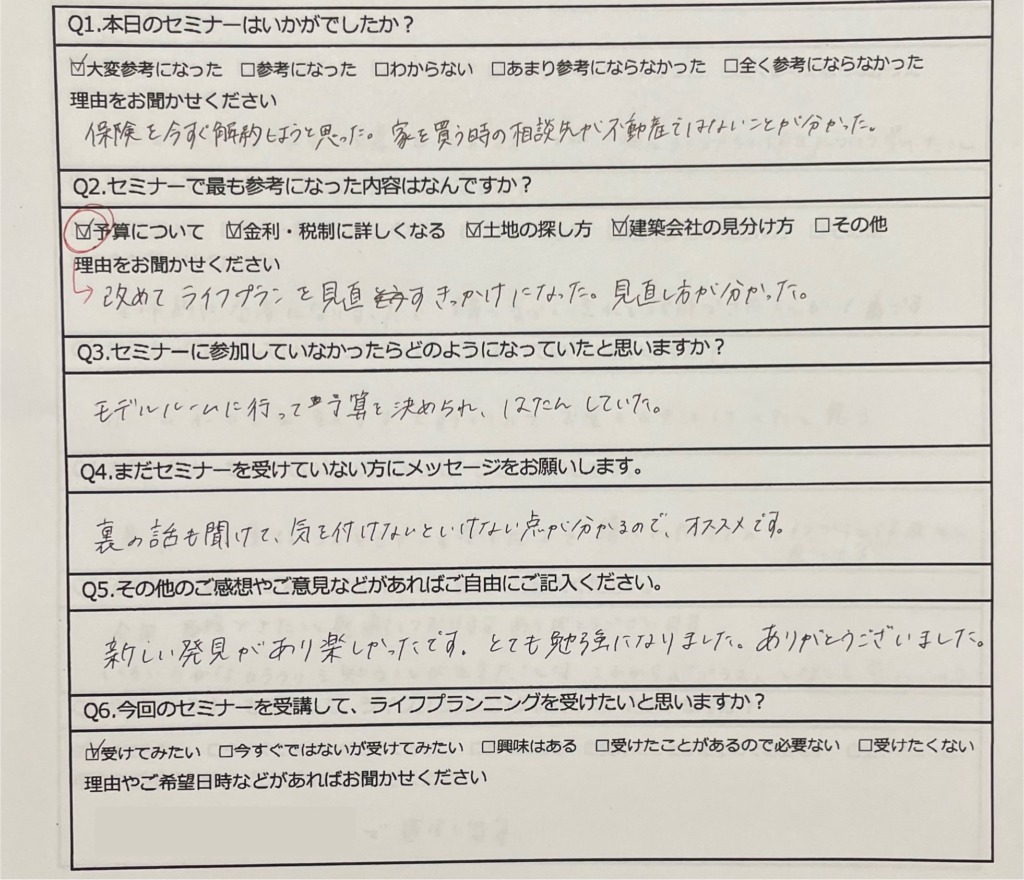 Q1.本日のセミナーはいかがでしたか？
☑大変参考になった □参考になった □わからない □あまり参考にならなかった □全く参考にならなかった
理由をお聞かせください
保険を今すぐ解約しようと思った。家を買う時の相談先が不動産ではないことが分かった。
Q2.セミナーで最も参考になった内容はなんですか？
☑予算について ☑金利・税制に詳しくなる ☑土地の探し方 ☑建築会社の見分け方 □その他
理由をお聞かせください
→改めてライフプランを見直すきっかけになった。見直し方が分かった。
Q3.セミナーに参加していなかったらどのようになっていたと思いますか？
モデルルームに行って予算を決められ、はたんしていた。
Q4.まだセミナーを受けていない方にメッセージをお願いします。
裏の話も聞けて、気を付けないといけない点が分かるので、オススメです。
Q5.その他のご感想やご意見などがあればご自由にご記入ください。
新しい発見があり楽しかったです。とても勉強になりました。ありがとうございました。
Q6.今回のセミナーを受講して、ライフプランニングを受けたいと思いますか？
☑受けてみたい □今すぐではないが受けてみたい □興味はある □受けたことがあるので必要ない □受けたくない
理由やご希望日時などがあればお聞かせください